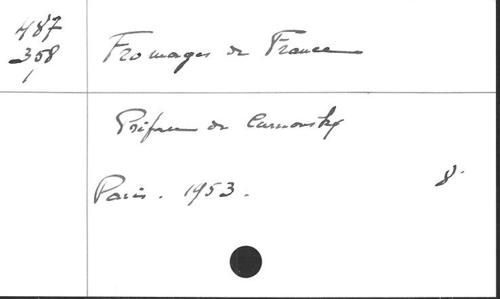 487
358
Fromages de France
Préface de Curnonsky
Paris. 1953.
8°